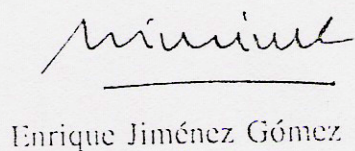 Enrique Jiménez Gómez